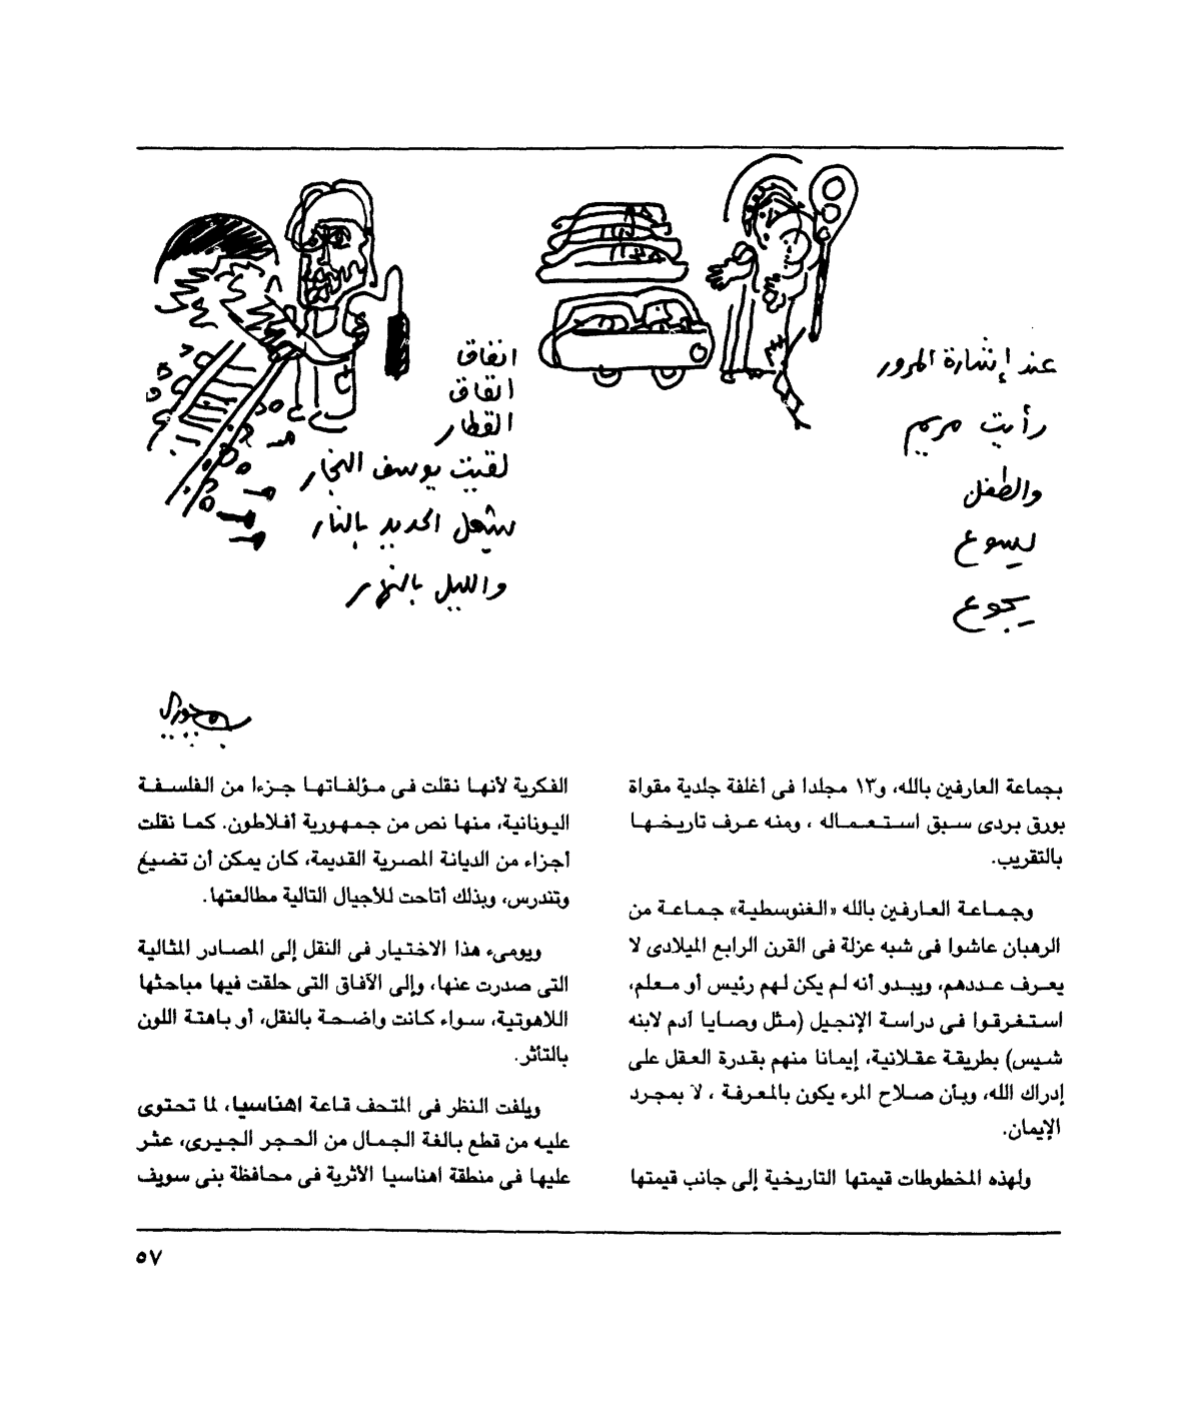 عند إشارة المرور
رأيت مريم
والطفل
يسوع
يجوع
انفاق
انفاق
القطار
لقيت يوسف النجار
يشعل الحديد بالنار
والليل بالنهار
بجماعة العارفين بالله، و١٣ مجلدا فى أغلفة جلدية مقواة
بورق بردى سبق استعماله ، ومنه عرف تاريخها
بالتقريب.
وجماعة العارفين بالله «الغنوسطية» جماعة من
الرهبان عاشوا فى شبه عزلة فى القرن الرابع الميلادى لا
يعرف عددهم، ويبدو أنه لم يكن لهم رئيس أو معلم،
استغرقوا فى دراسة الإنجيل (مثل وصايا آدم لابنه
شيس) بطريقة عقلانية، إيمانا منهم بقدرة العقل على
إدراك الله، وبأن صلاح المرء يكون بالمعرفة ، لا بمجرد
الإيمان.
ولهذه المخطوطات قيمتها التاريخية إلى جانب قيمتها
الفكرية لأنها نقلت فى مؤلفاتها جزءا من الفلسفة
اليونانية، منها نص من جمهورية أفلاطون. كما نقلت
أجزاء من الديانة المصرية القديمة، كان يمكن أن تضيع
وتندرس، وبذلك أتاحت للأجيال التالية مطالعتها.
ويومىء هذا الاختيار فى النقل إلى المصادر المثالية
التى صدرت عنها، وإلى الآفاق التى حلقت فيها مباحثها
اللاهوتية، سواء كانت واضحة بالنقل، أو باهتة اللون
بالتأثر.
ويلفت النظر فى المتحف قاعة اهناسيا، لما تحتوى
عليه من قطع بالغة الجمال من الحجر الجيرى، عثر
عليها فى منطقة اهناسيا الأثرية فى محافظة بنى سويف
٥٧